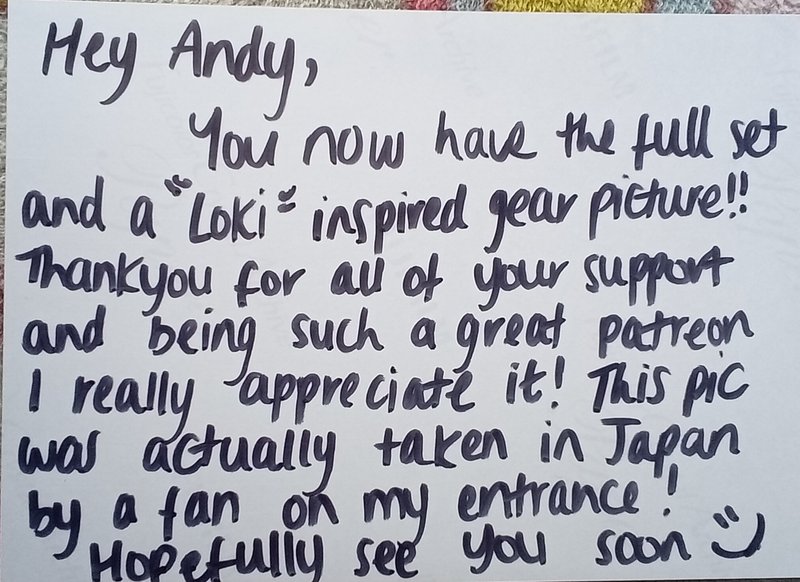 Hey Andy,
You now have the full set
and a "Loki" inspired gear picture!!
Thankyou for all of your support
and being such a great patreon
I really appreciate it! This pic
was actually taken in Japan
by a fan on my entrance!
Hopefully see you soon